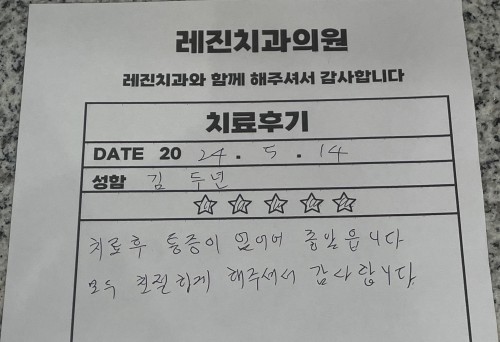 레진치과의원
레진치과와 함께 해주셔서 감사합니다
치료후기
DATE 20 24. 5. 14
성함 김 두년
치료후 통증이 없어어 좋읍니다
모두 친절하게 해주세서 감사합니다